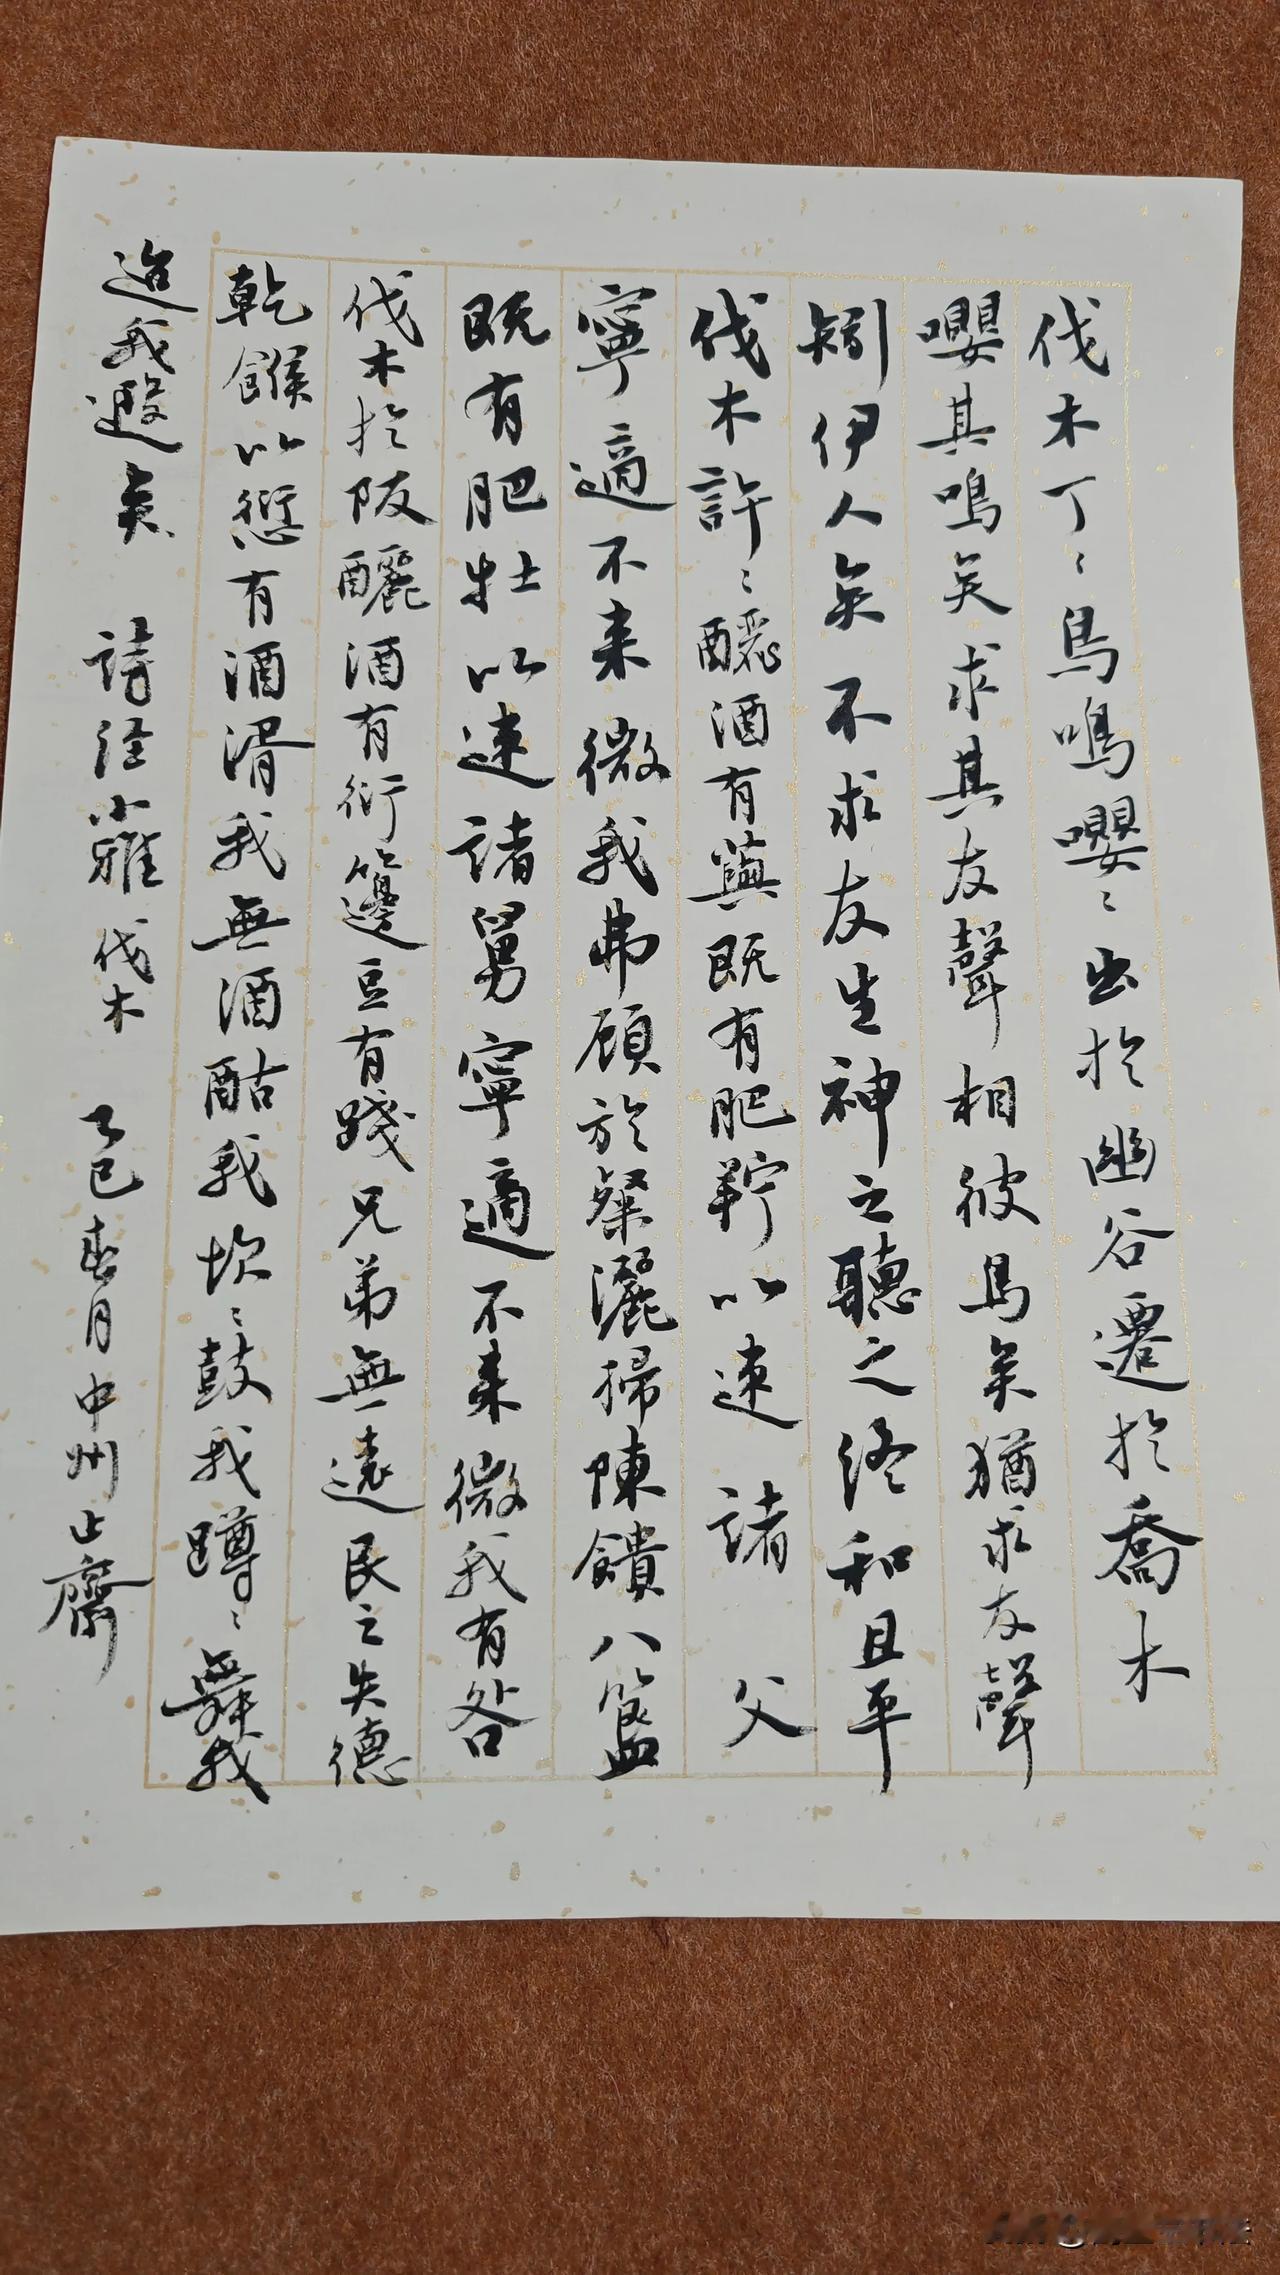 伐木丁〻鳥鳴嚶〻出於幽谷遷於喬木
嚶其鳴矣求其友聲相彼鳥矣猶求友聲
矧伊人矣不求友生神之聽之終和且平
伐木許〻釃酒有藇既有肥羜以速諸父
寧適不来微我弗顧於粲灑掃陳饋八簋
既有肥牡以速諸舅寧適不来微我有咎
伐木於阪釃酒有衍籩豆有踐兄弟無遠民之失德
乾餱以愆有酒湑我無酒酤我坎〻鼓我蹲〻舞我
迨我暇矣 詩經小雅伐木 乙巳春月中州止齋